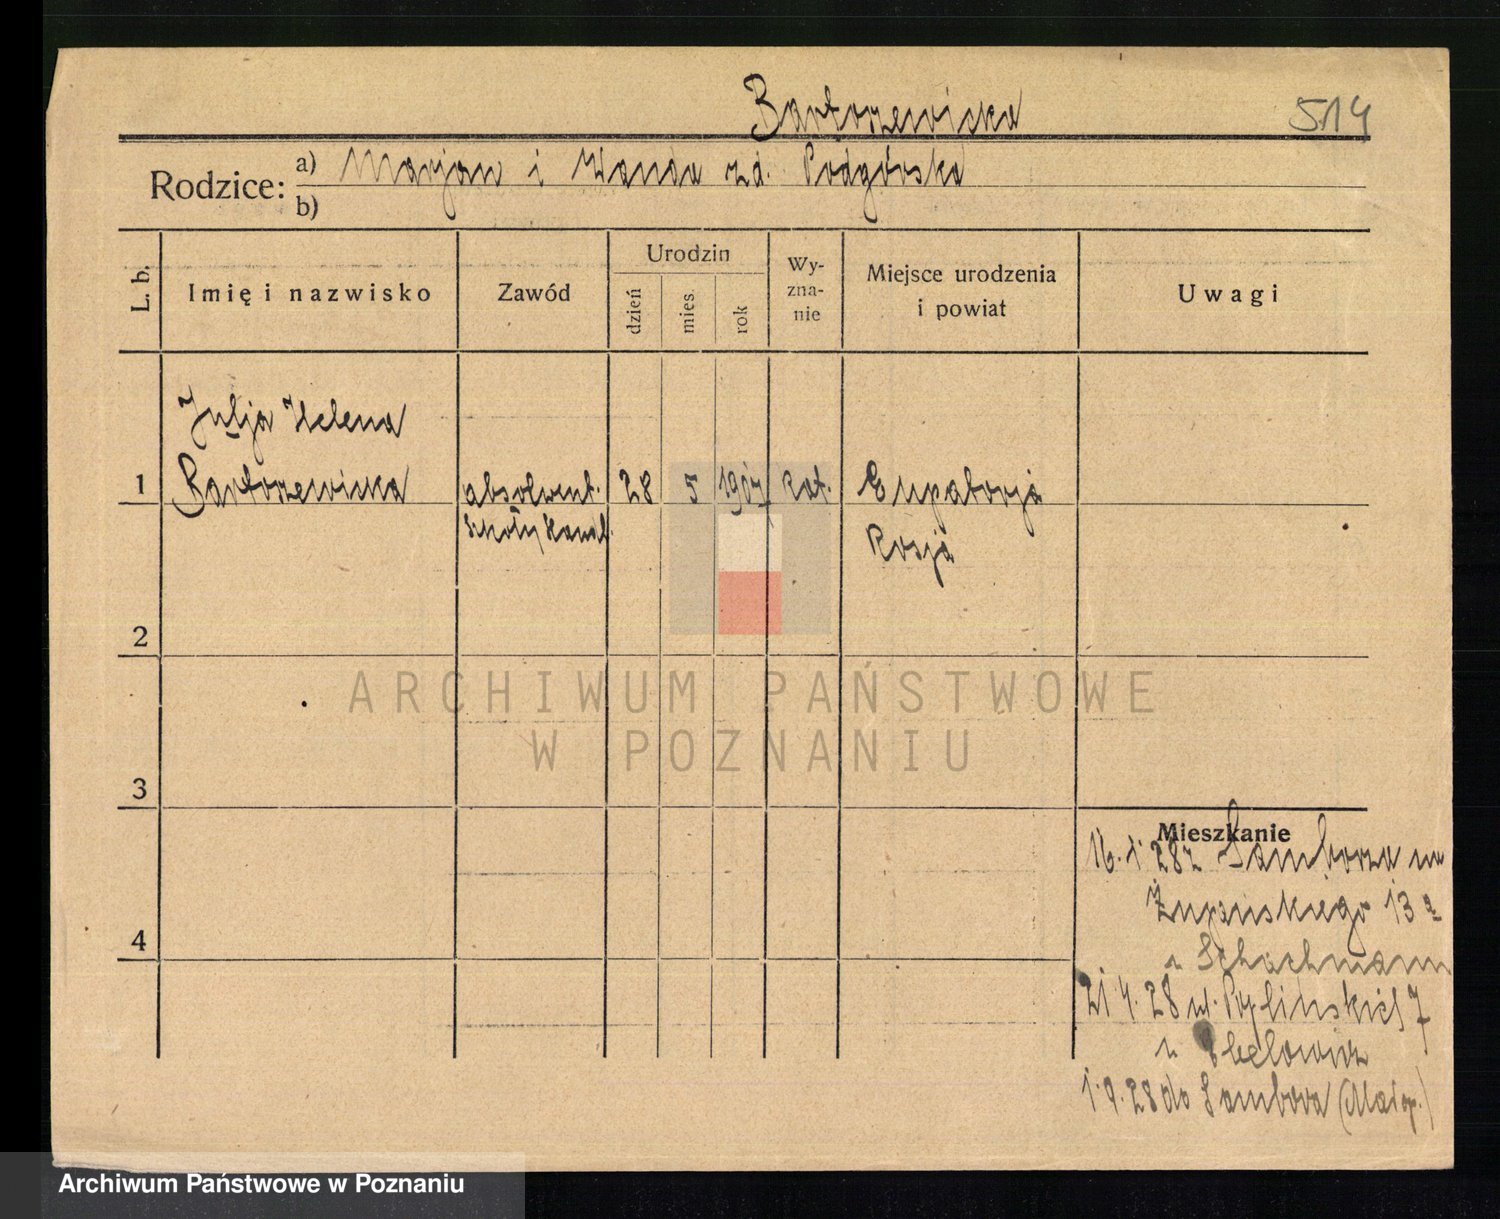 Bartoszewicka
514
Rodzice: a) Marjan i Wanda zd. Podgórska
b)
L. b.
Imię i nazwisko
Zawód
Urodzin
dzień
mies.
rok
Wy-
zna-
nie
Miejsce urodzenia
i powiat
Uwagi
Julja Helena
1 Bartoszewicka absolwent. 28 5 1907 kat. Eupatorja
szkoły handl. Rosja
2
ARCHIWUM PAŃSTWOWE
W POZNANIU
3
Mieszkanie
16.1.28 z Sambora
4
Żupańskiego 13a
u Schachmann
21 4. 28 ul. 7
u
1.9.28 do Sambora (Małop.)
Archiwum Państwowe w Poznaniu